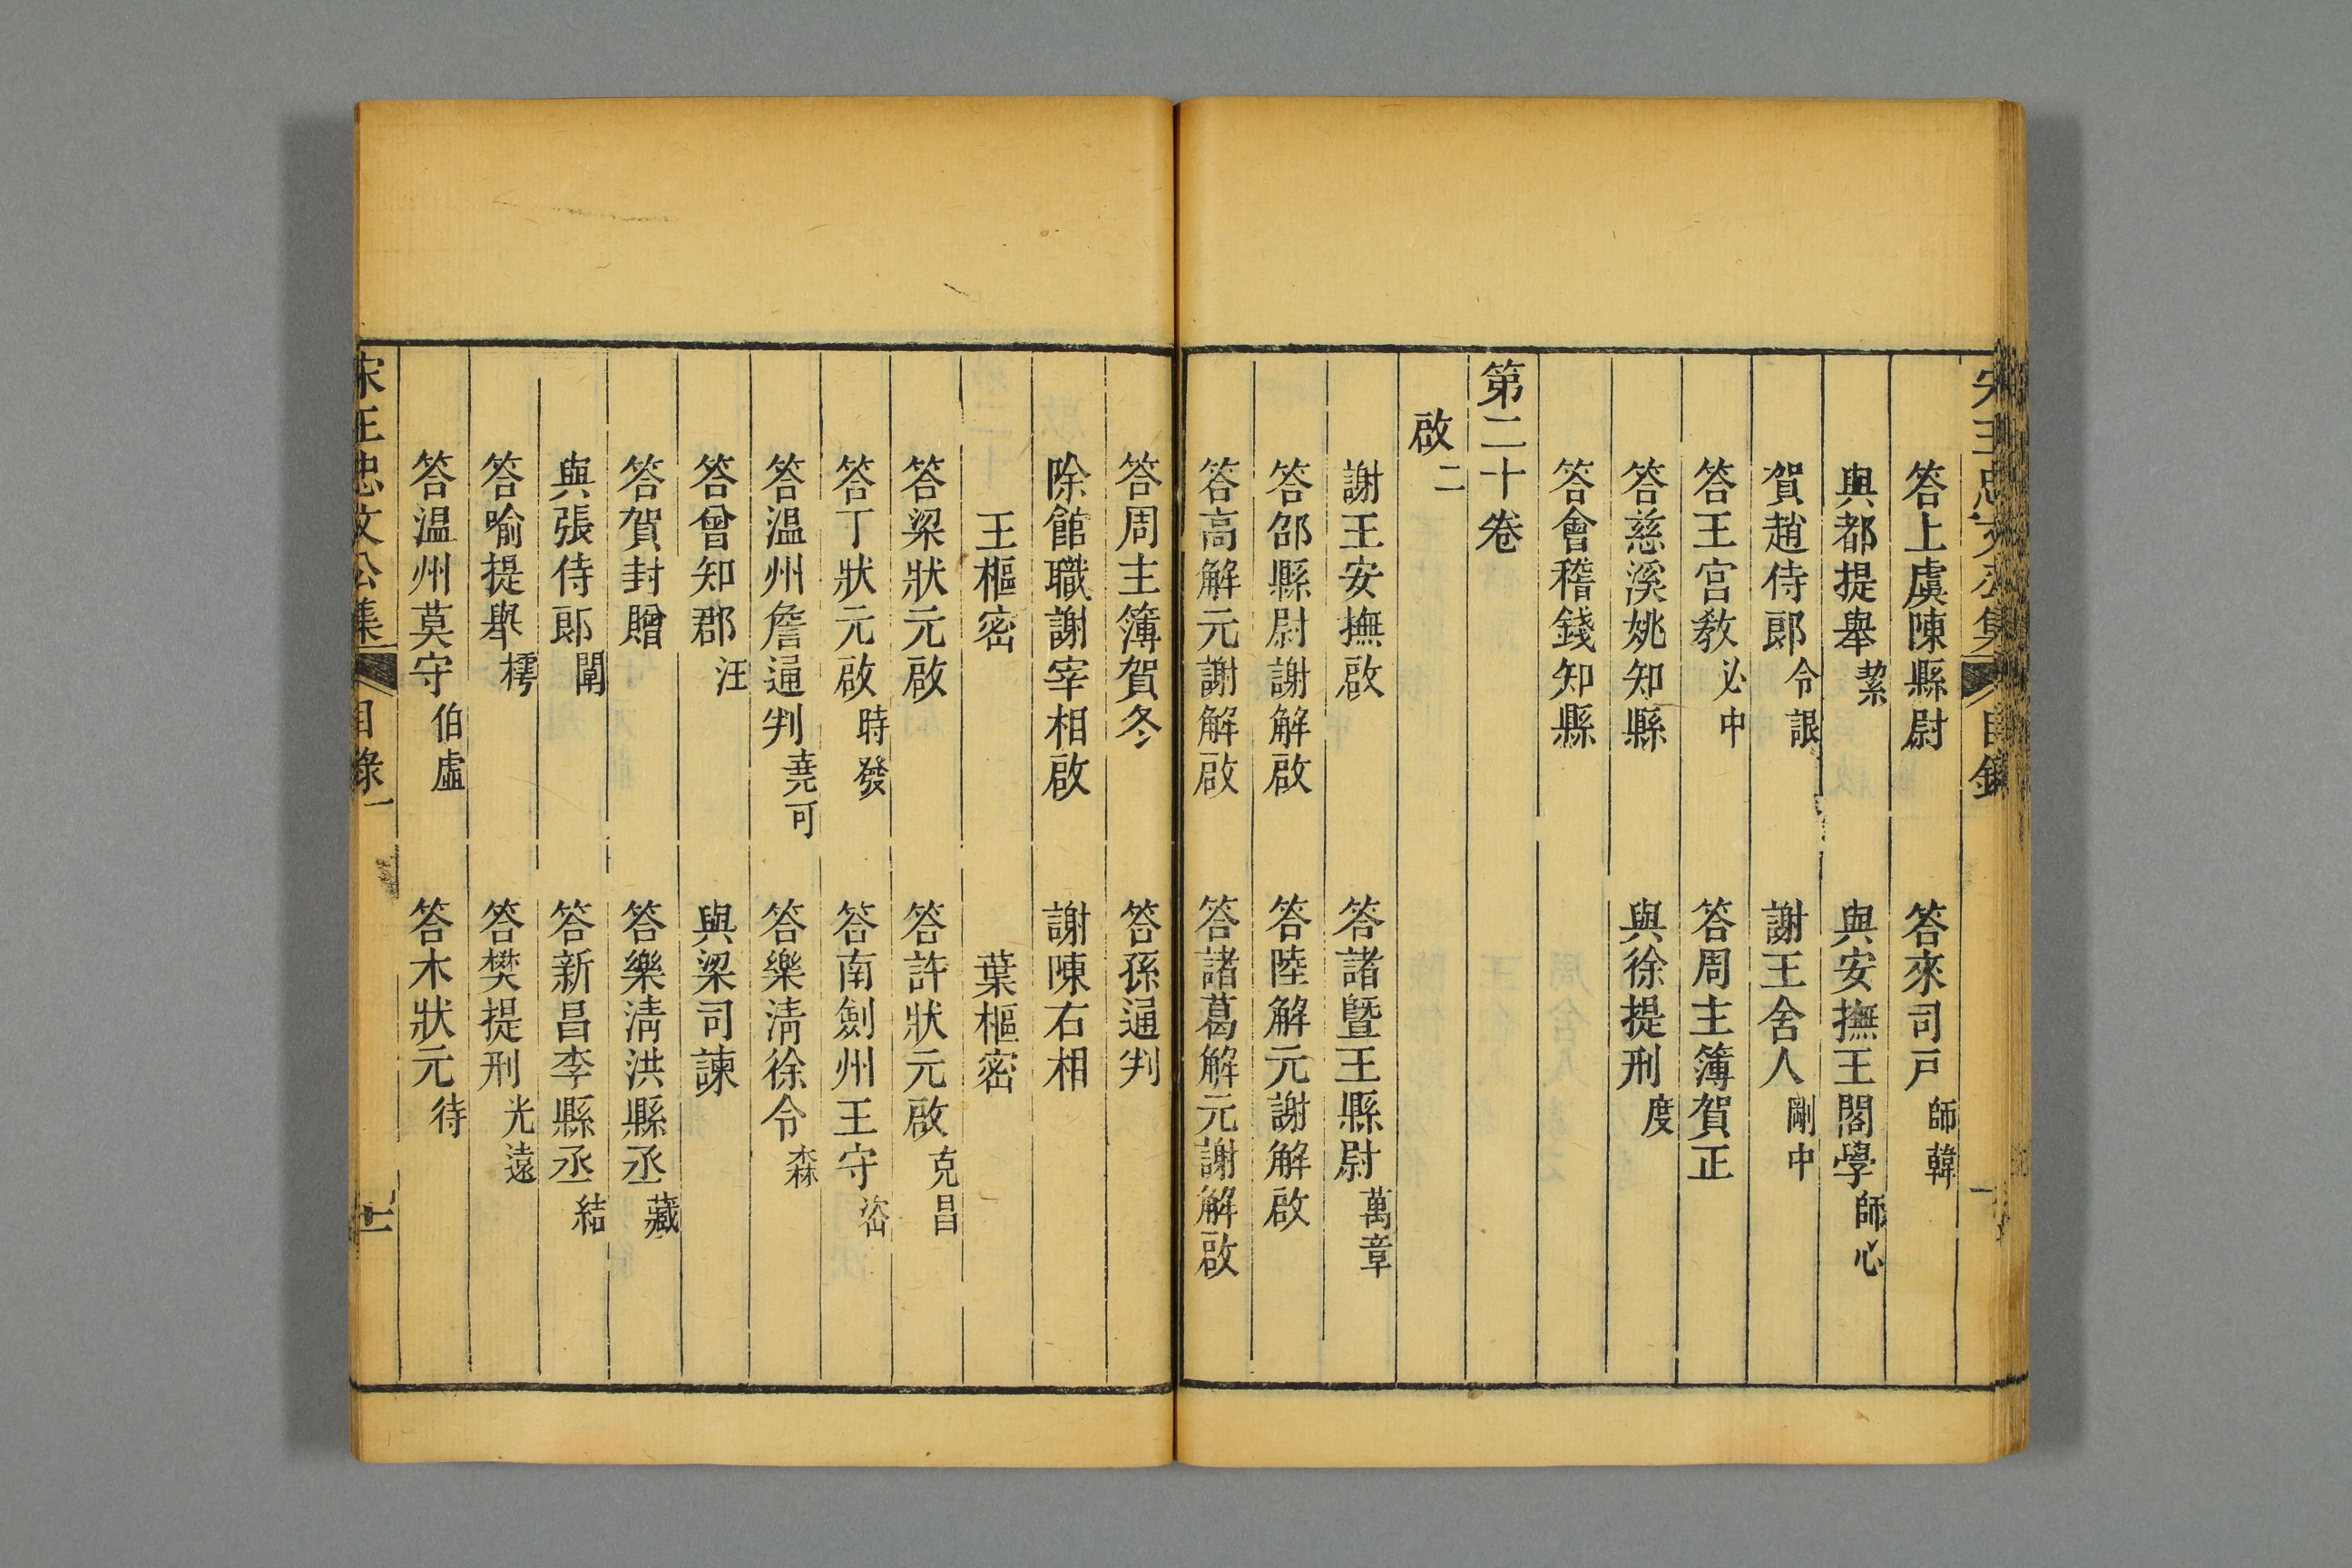 答上虞陳縣尉　答來司戸師韓
與都提舉絜　與安撫王閣學師心
賀趙侍郎令詪　謝王舍人剛中
答王宮教必中　答周主簿賀正
答慈溪姚知縣　與徐提刑度
答會稽錢知縣
第二十卷
啟二
謝王安撫啟　答諸曁王縣尉萬章
答邵縣尉謝解啟　答陸解元謝解啟
答高解元謝解啟　答諸葛解元謝解啟
答周主簿賀冬　答孫通判
除館職謝宰相啟　謝陳右相
王樞密　葉樞密
答梁狀元啟　答許狀元啟克昌
答丁狀元啟時發　答南劍州王守
答温州詹通判堯可　答樂清徐令森
答曾知郡汪　與梁司諫
答賀封贈　答樂清洪縣丞藏
與張侍郎闡　答新昌李縣丞結
答喻提舉樗　答樊提刑光遠
答温州莫守伯虛　答木狀元待
宋王忠文公集　目錄一